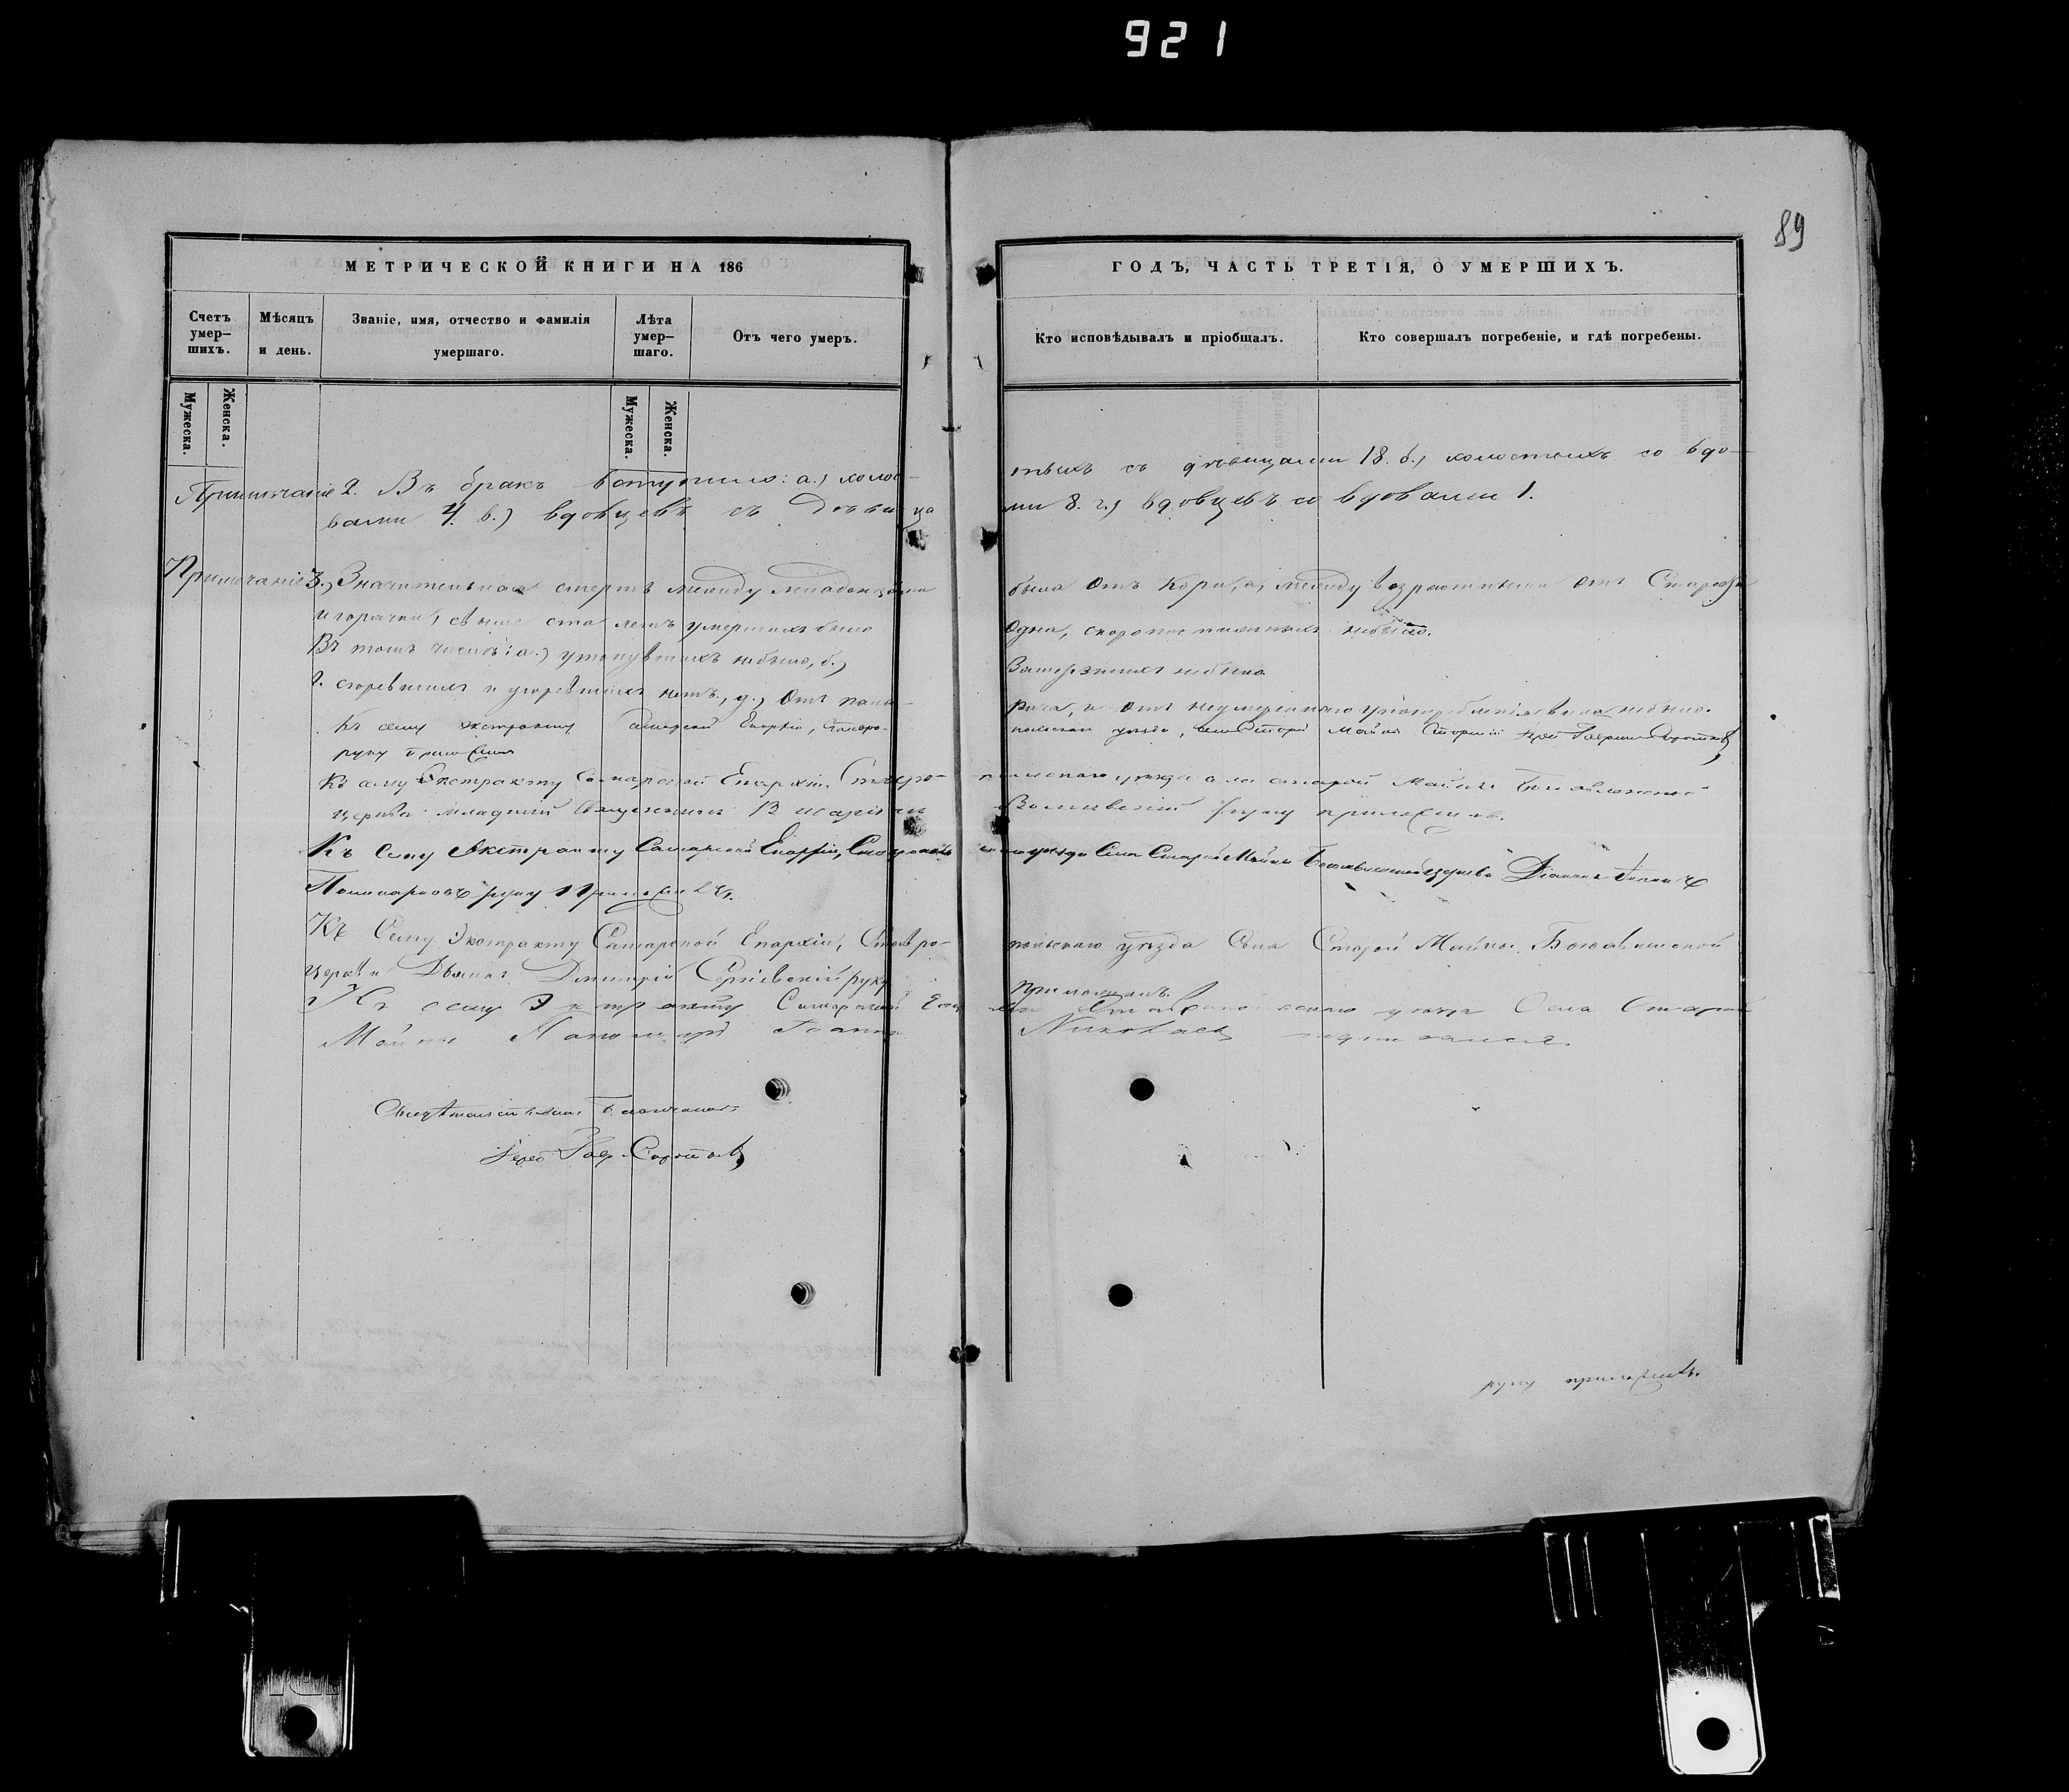 921
89
МЕТРИЧЕСКОЙ КНИГИ НА 186
ГОДЪ, ЧАСТЬ ТРЕТІЯ, О УМЕРШИХЪ.
Счетъ умер-шихъ.
Мѣсяцъ и день.
Званіе, имя, отчество и фамилія умершаго.
Лѣта умер-шаго.
Отъ чего умеръ.
Кто исповѣдывалъ и пріобщалъ.
Кто совершалъ погребеніе, и гдѣ погребены.
Мужеска.
Женска.
Мужеска.
Женска.
Примѣчаніе 2. Въ бракъ вступило: а.) холос-
тыхъ съ дѣвицами 18. б.) холостыхъ со вдо-
вами 4. в.) вдовцевъ съ дѣвица
ми 8. г.) вдовцевъ со вдовами 1.
Примѣчаніе 3.) Значительная смерть между младенцами
была отъ Кори, а между возрастными отъ Старости
и горячки, свыше ста летъ умершихъ было
одна, скоропостижныхъ небыло.
Въ томъ числѣ: а.) утонувшихъ небыло, б.)
Замерзшихъ небыло
г. сгоревшихъ и угоревшихъ нетъ, д.) Отъ
и отъ неумереннаго употребленія вина небыло.
Къ сему экстракту Самарской Епархіи, Ставро-
польскаго уезда, села Старой Майны Іерей
руку приложилъ
Къ сему Экстракту Самарской Епархіи Ставро-
польскаго уезда села старой Майны Богоявленской
церкви младшій Священникъ
руку приложилъ.
Къ Сему Экстракту Самарской Епархіи, Ставрополь
скаго уезда Села Старой Майны Богоявленской церкви Діаконъ
руку Приложилъ.
Къ Сему Экстракту Самарской Епархіи, Ставро-
польскаго уезда Села Старой Майны Богоявленской
церкви Дьячекъ Димитрій Сергіевскій руку
приложилъ.
Къ сему Экстракту Самарской Епар
хіи Ставропольскаго уезда Села Старой
Майны Пономарь
Николаевъ подписался.
Іерей
руку приложилъ.